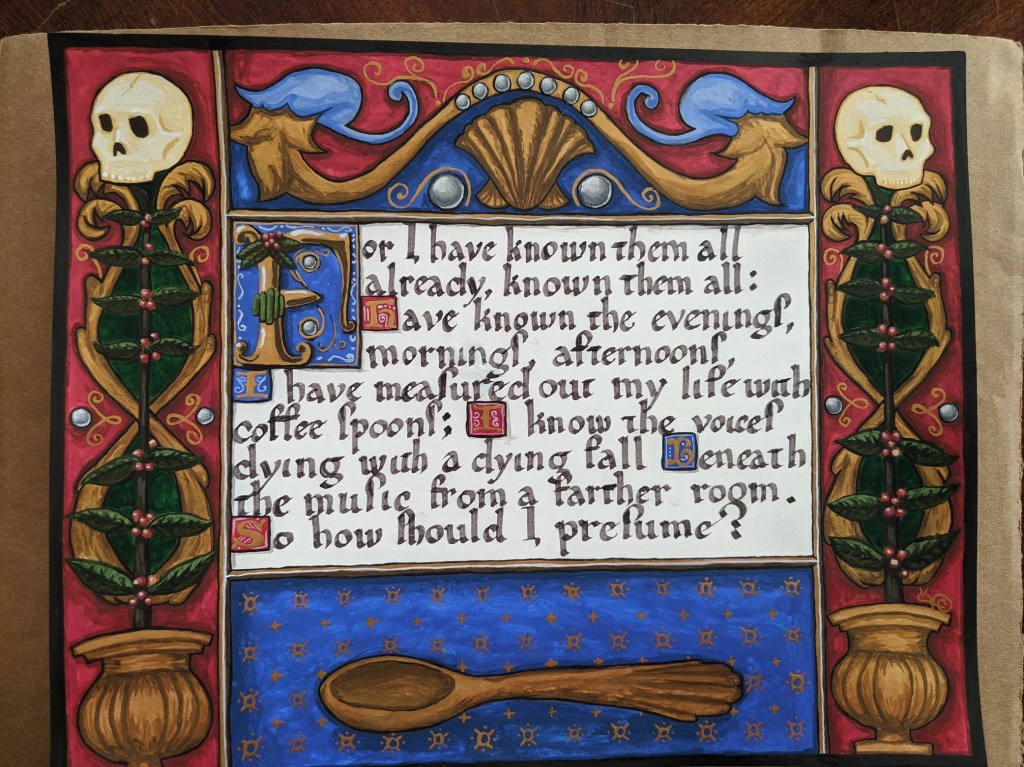 For I have known them all
already, known them all:
Have known the evenings,
mornings, afternoons,
I have measured out my life with
coffee spoons; I know the voices
dying with a dying fall Beneath
the music from a farther room.
So how should I presume?